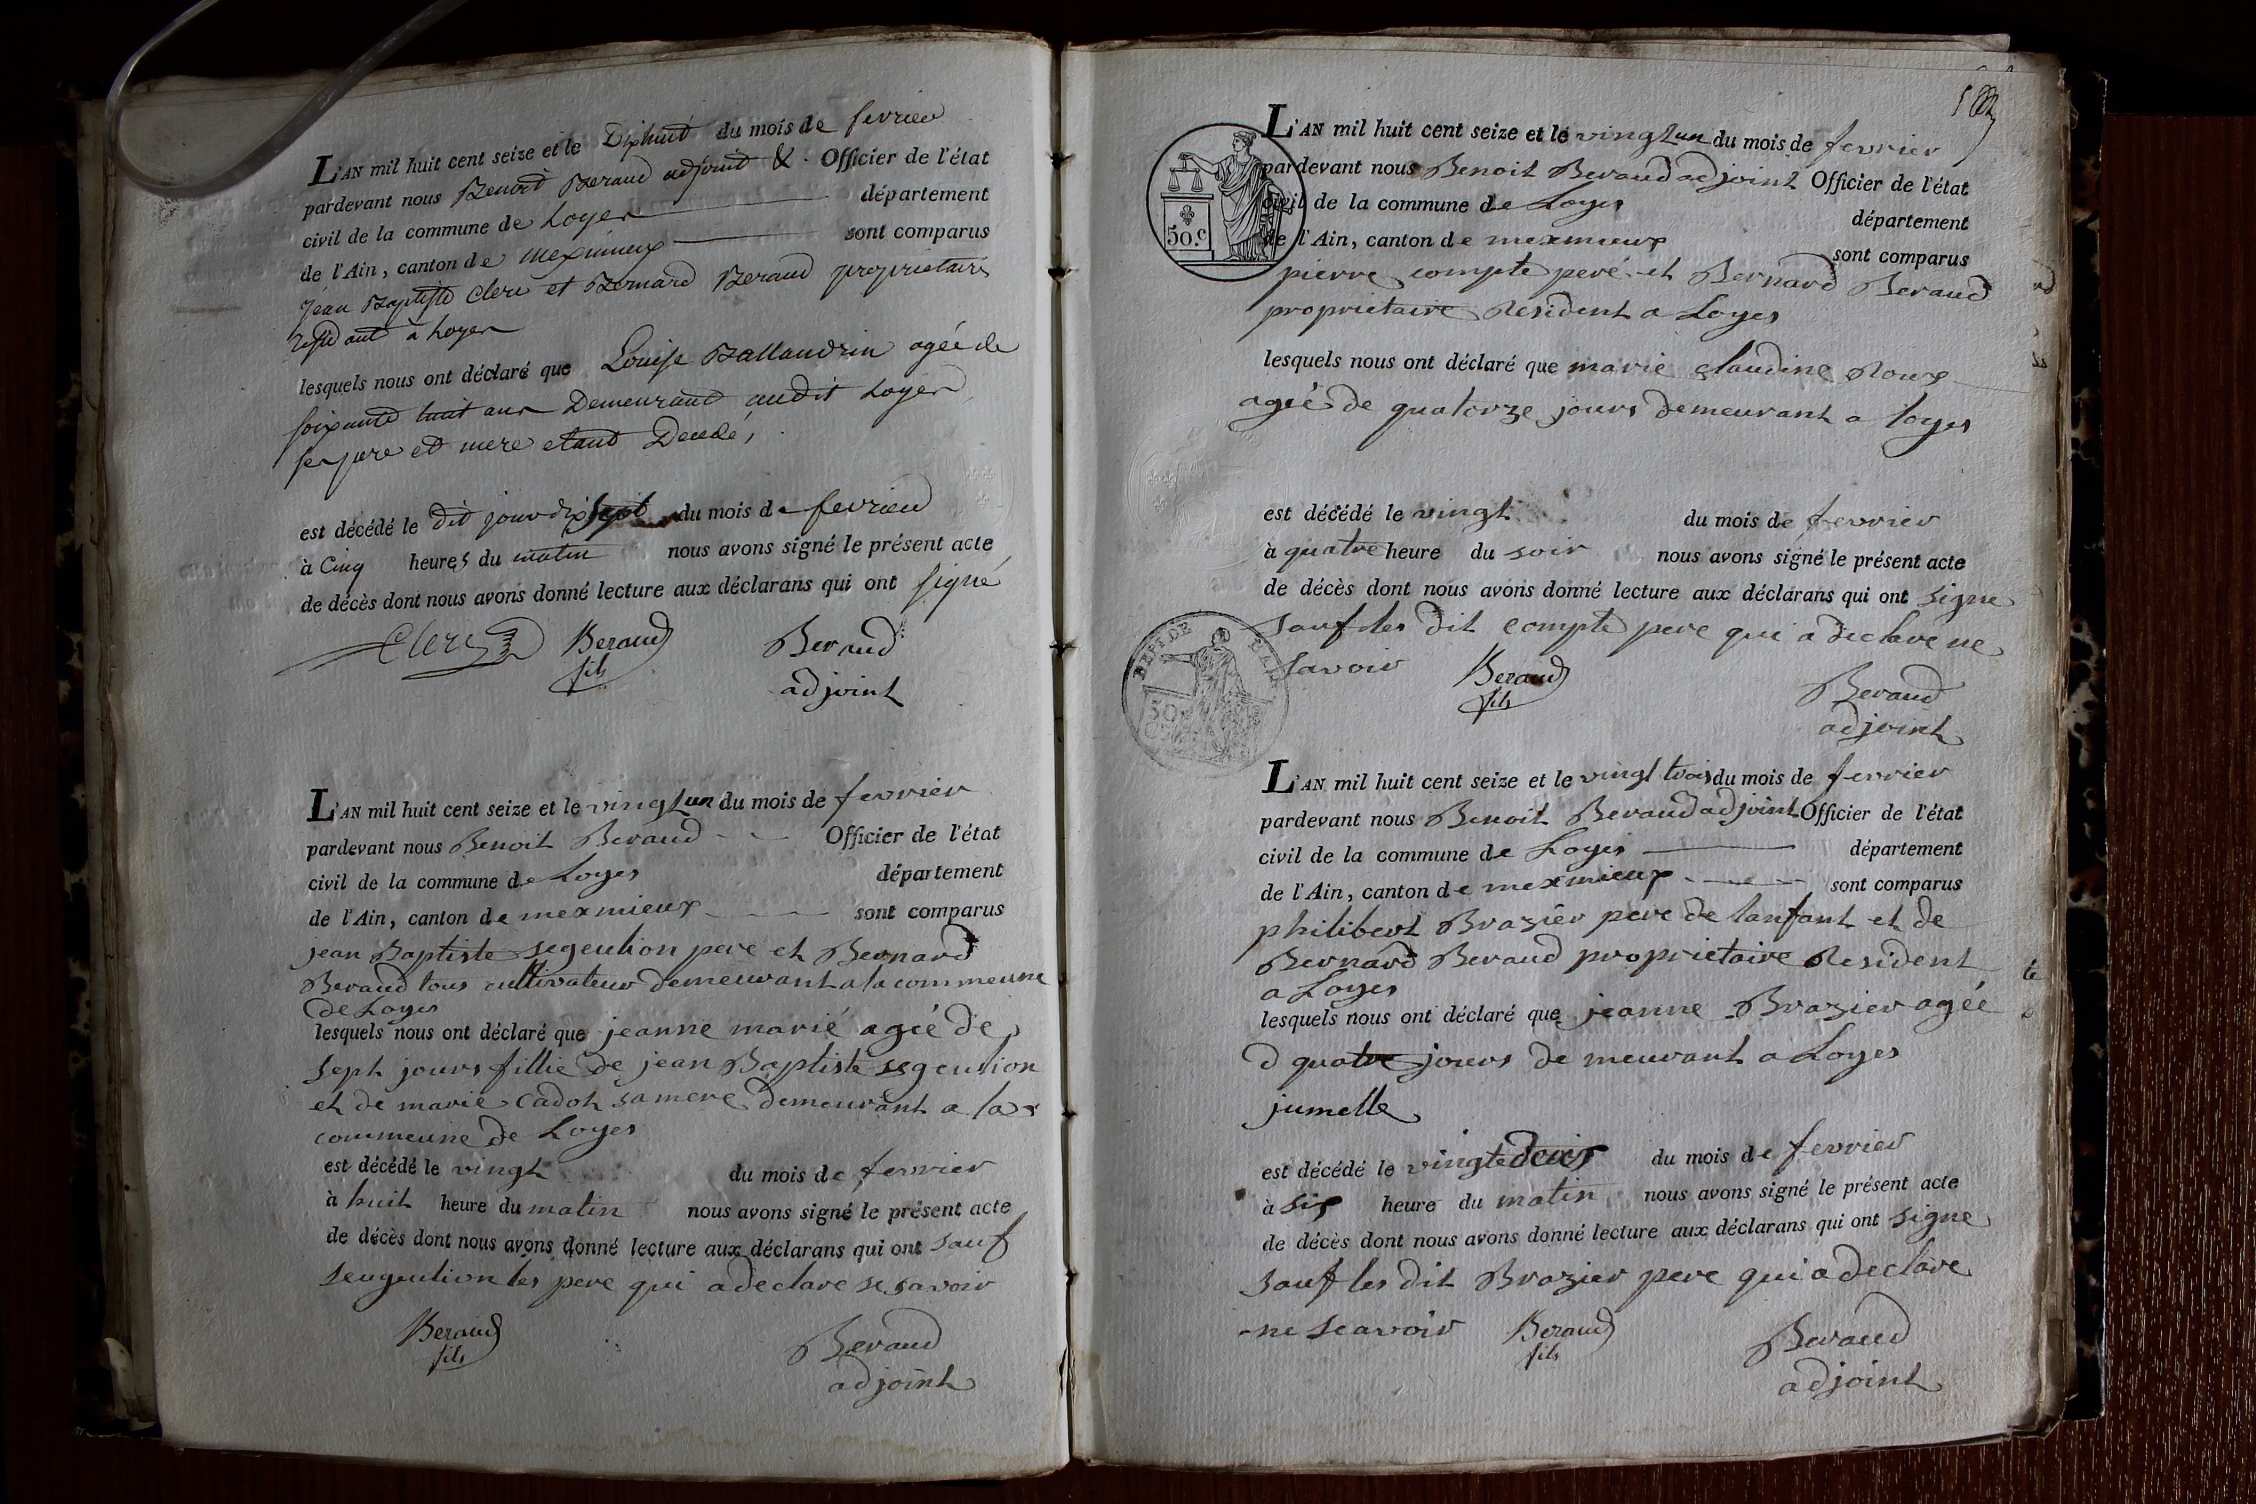 L'AN mil huit cent seize et le Dixhuit du mois de fevrier
pardevant nous Benoit Beraud adjoint & Officier de l'état
civil de la commune de Loyes département
de l'Ain, canton de meximieux sont comparus
Jean Baptiste Clerc et Bernard Beraud proprietaires
residant à Loyes
lesquels nous ont déclaré que Louise Ballaudrin agée de
soixante huit ans Demeurant audit Loyes
ses pere et mere etant Decedé,
est décédé le dit jour dixsept du mois de fevrier
à Cinq heures du matin nous avons signé le présent acte
de décès dont nous avons donné lecture aux déclarans qui ont signé
Clerc Beraud Beraud
fils adjoint
L'AN mil huit cent seize et le vingt un du mois de fevrier
pardevant nous Benoit Beraud Officier de l'état
civil de la commune de Loyes département
de l'Ain, canton de mexmieux sont comparus
jean Baptiste segeulion pere et Bernard
Beraud tous cultivateur demeurant a la commeune
de Loyes
lesquels nous ont déclaré que jeanne marié agée de
sept jours fillie de jean Baptiste segeulion
et de marie Cadot sa mere demeurant a la
commeune de Loyes
est décédé le vingt du mois de fevrier
à huit heure du matin nous avons signé le présent acte
de décès dont nous avons donné lecture aux déclarans qui ont sauf
seugeulion les pere qui a declare se savoir
Beraud Beraud
fils adjoint
L'AN mil huit cent seize et le vingt un du mois de fevrier
pardevant nous Benoit Beraud adjoint Officier de l'état
civil de la commune de Loyes
département
de l'Ain, canton de mexmieux
sont comparus
50.c
pierre compte peré et Bernard Beraud
proprietaire Resident a Loyes
lesquels nous ont déclaré que marie claudine Roux
agée de quatorze jours demeurant a loyes
est décédé le vingt du mois de fevrier
à quatre heure du soir nous avons signé le présent acte
de décès dont nous avons donné lecture aux déclarans qui ont signe
sauf les dit compte pere qui a declare ne
savoir Beraud Beraud
fils adjoint
L'AN mil huit cent seize et le vingt trois du mois de fevrier
pardevant nous Benoit Beraud adjoint Officier de l'état
civil de la commune de Loyes département
de l'Ain, canton de mexmieux sont comparus
philibert Brazier pere de lanfant et de
Bernard Beraud proprietaire Resident
a Loyes
lesquels nous ont déclaré que jeanne Brazier agée
d quatre jours de meurant a Loyes
jumelle
est décédé le vingte deux du mois de fevrier
à six heure du matin nous avons signé le présent acte
de décès dont nous avons donné lecture aux déclarans qui ont signe
sauf les dit Brazier pere qui a declare
ne scavoir Beraud Beraud
fils adjoint